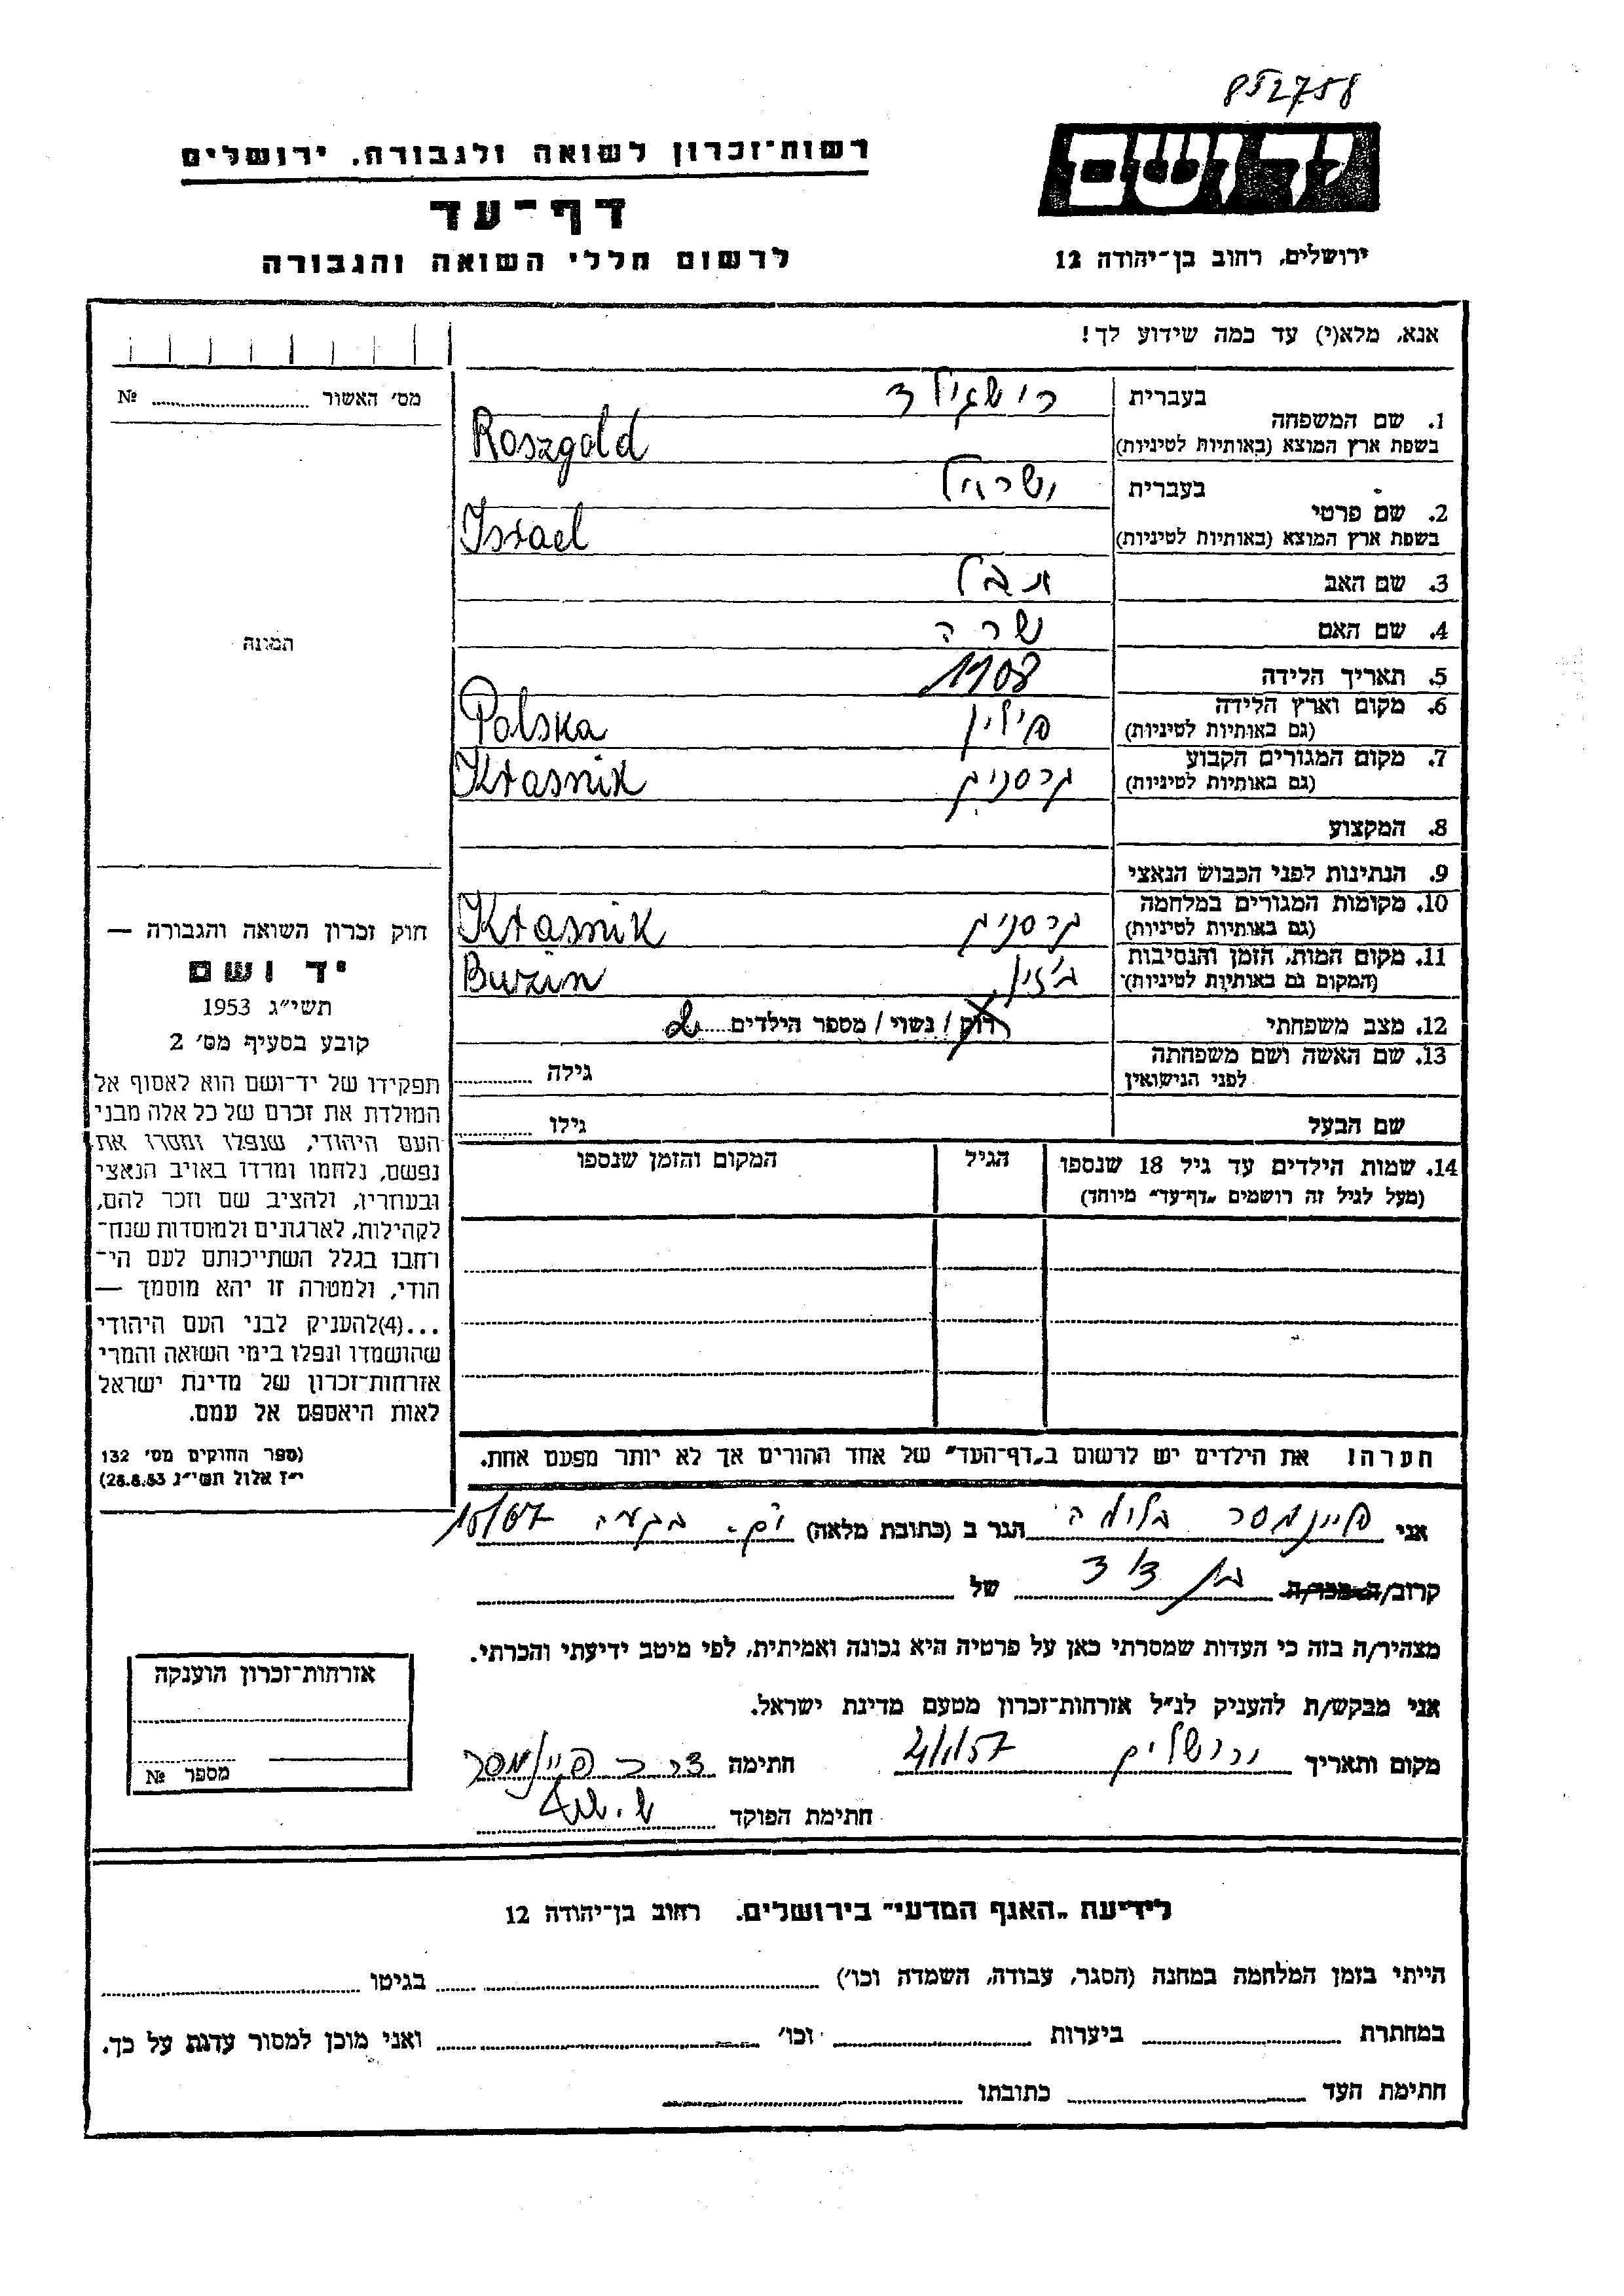 852758
יד ושם
רשות־זכרון לשואה ולגבורה, ירושלים
דף־עד
לרשום חללי השואה והגבורה
ירושלים, רחוב בן־יהודה 12
אנא, מלא(י) עד כמה שידוע לך!
מס׳ האשור № 
1. שם המשפחה
בעברית
רושגולד
בשפת ארץ המוצא (באותיות לטיניות)
Roszgold
2. שם פרטי
בעברית
ישראל
בשפת ארץ המוצא (באותיות לטיניות)
Israel
3. שם האב
4. שם האם שרה
5. תאריך הלידה 1908
6. מקום וארץ הלידה
(גם באותיות לטיניות)
פולין Polska
7. מקום המגורים הקבוע
(גם באותיות לטיניות)
קרסניק Krasnik
8. המקצוע
9. הנתינות לפני הכבוש הנאצי
10. מקומות המגורים במלחמה
(גם באותיות לטיניות)
קרסניק Krasnik
11. מקום המות, הזמן והנסיבות
(המקום גם באותיות לטיניות)
Buzin
12. מצב משפחתי רוק / נשוי / מספר הילדים
13. שם האשה ושם משפחתה
לפני הנישואין
גילה
שם הבעל גילו
14. שמות הילדים עד גיל 18 שנספו
(מעל לגיל זה רושמים „דף־עד״ מיוחד)
הגיל
המקום והזמן שנספו
הערה! את הילדים יש לרשום ב„דף־העד״ של אחד ההורים אך לא יותר מפעם אחת.
התמונה
חוק זכרון השואה והגבורה —
יד ושם
תשי״ג 1953
קובע בסעיף מס׳ 2
תפקידו של יד־ושם הוא לאסוף אל
המולדת את זכרם של כל אלה מבני
העם היהודי, שנפלו ומסרו את
נפשם, נלחמו ומרדו באויב הנאצי
ובעוזריו, ולהציב שם וזכר להם,
לקהילות, לארגונים ולמוסדות שנח־
רחבו בגלל השתייכותם לעם הי־
הודי, ולמטרה זו יהא מוסמך —
...(4)להעניק לבני העם היהודי
שהושמדו ונפלו בימי השואה והמרי
אזרחות־זכרון של מדינת ישראל
לאות היאספם אל עמם.
(ספר החוקים מס׳ 132
י״ז אלול תשי״ג 28.8.53)
אני פיינמסר בלומה הגר ב (כתובת מלאה) ים. בקעה
קרוב/ה מכר/ה בן דוד של
מצהיר/ה בזה כי העדות שמסרתי כאן על פרטיה היא נכונה ואמיתית, לפי מיטב ידיעתי והכרתי.
אני מבקש/ת להעניק לנ״ל אזרחות־זכרון מטעם מדינת ישראל.
מקום ותאריך ירושלים חתימה פיינמסר
חתימת הפוקד
אזרחות־זכרון הוענקה
מספר №
לידיעת „האגף המדעי״ בירושלים. רחוב בן־יהודה 12
הייתי בזמן המלחמה במחנה (הסגר, עבודה, השמדה וכו׳) בגיטו
במחתרת ביערות וכו׳ ואני מוכן למסור עדות על כך.
חתימת העד כתובתו